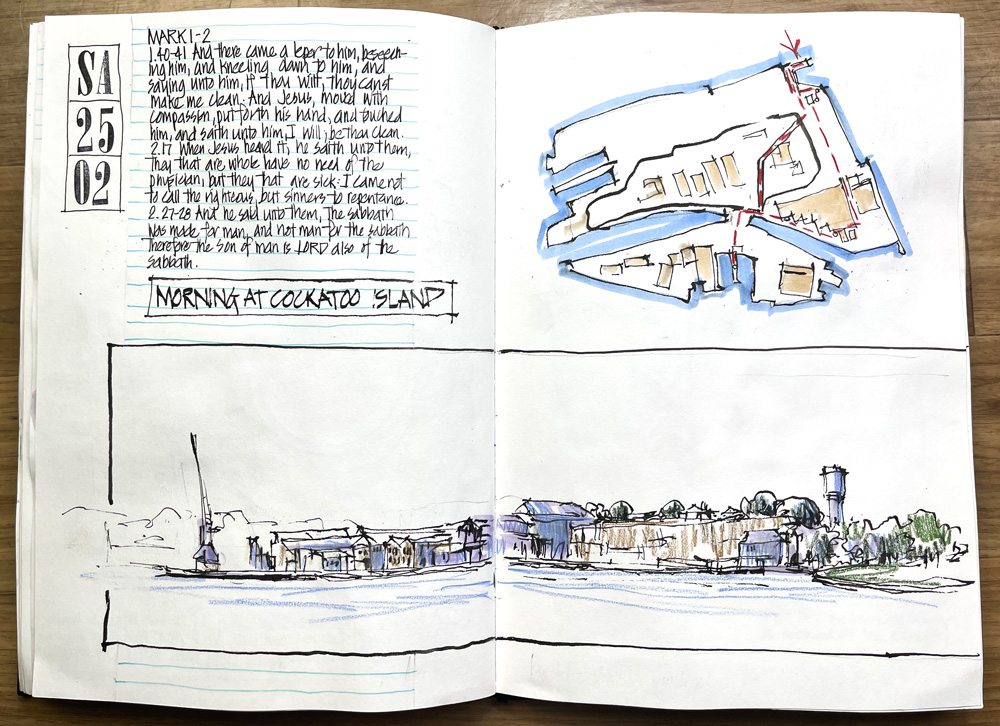 SA
25
02
MARK 1-2
1.40-41 And there came a leper to him, beseech-
ing him, and kneeling down to him, and
saying unto him, If thou wilt, they canst
make me clean. And Jesus, moved with
compassion, put forth his hand, and touched
him, and saith unto him, I will; be thou clean.
2.17 When Jesus heard it, he saith unto them,
They that are whole have no need of the
physician, but they that are sick: I came not
to call the righteous, but sinners to repentance.
2.27-28 And he said unto them, The sabbath
was made for man, and not man for the sabbath
Therefore the Son of man is LORD also of the
sabbath.
MORNING AT COCKATOO ISLAND